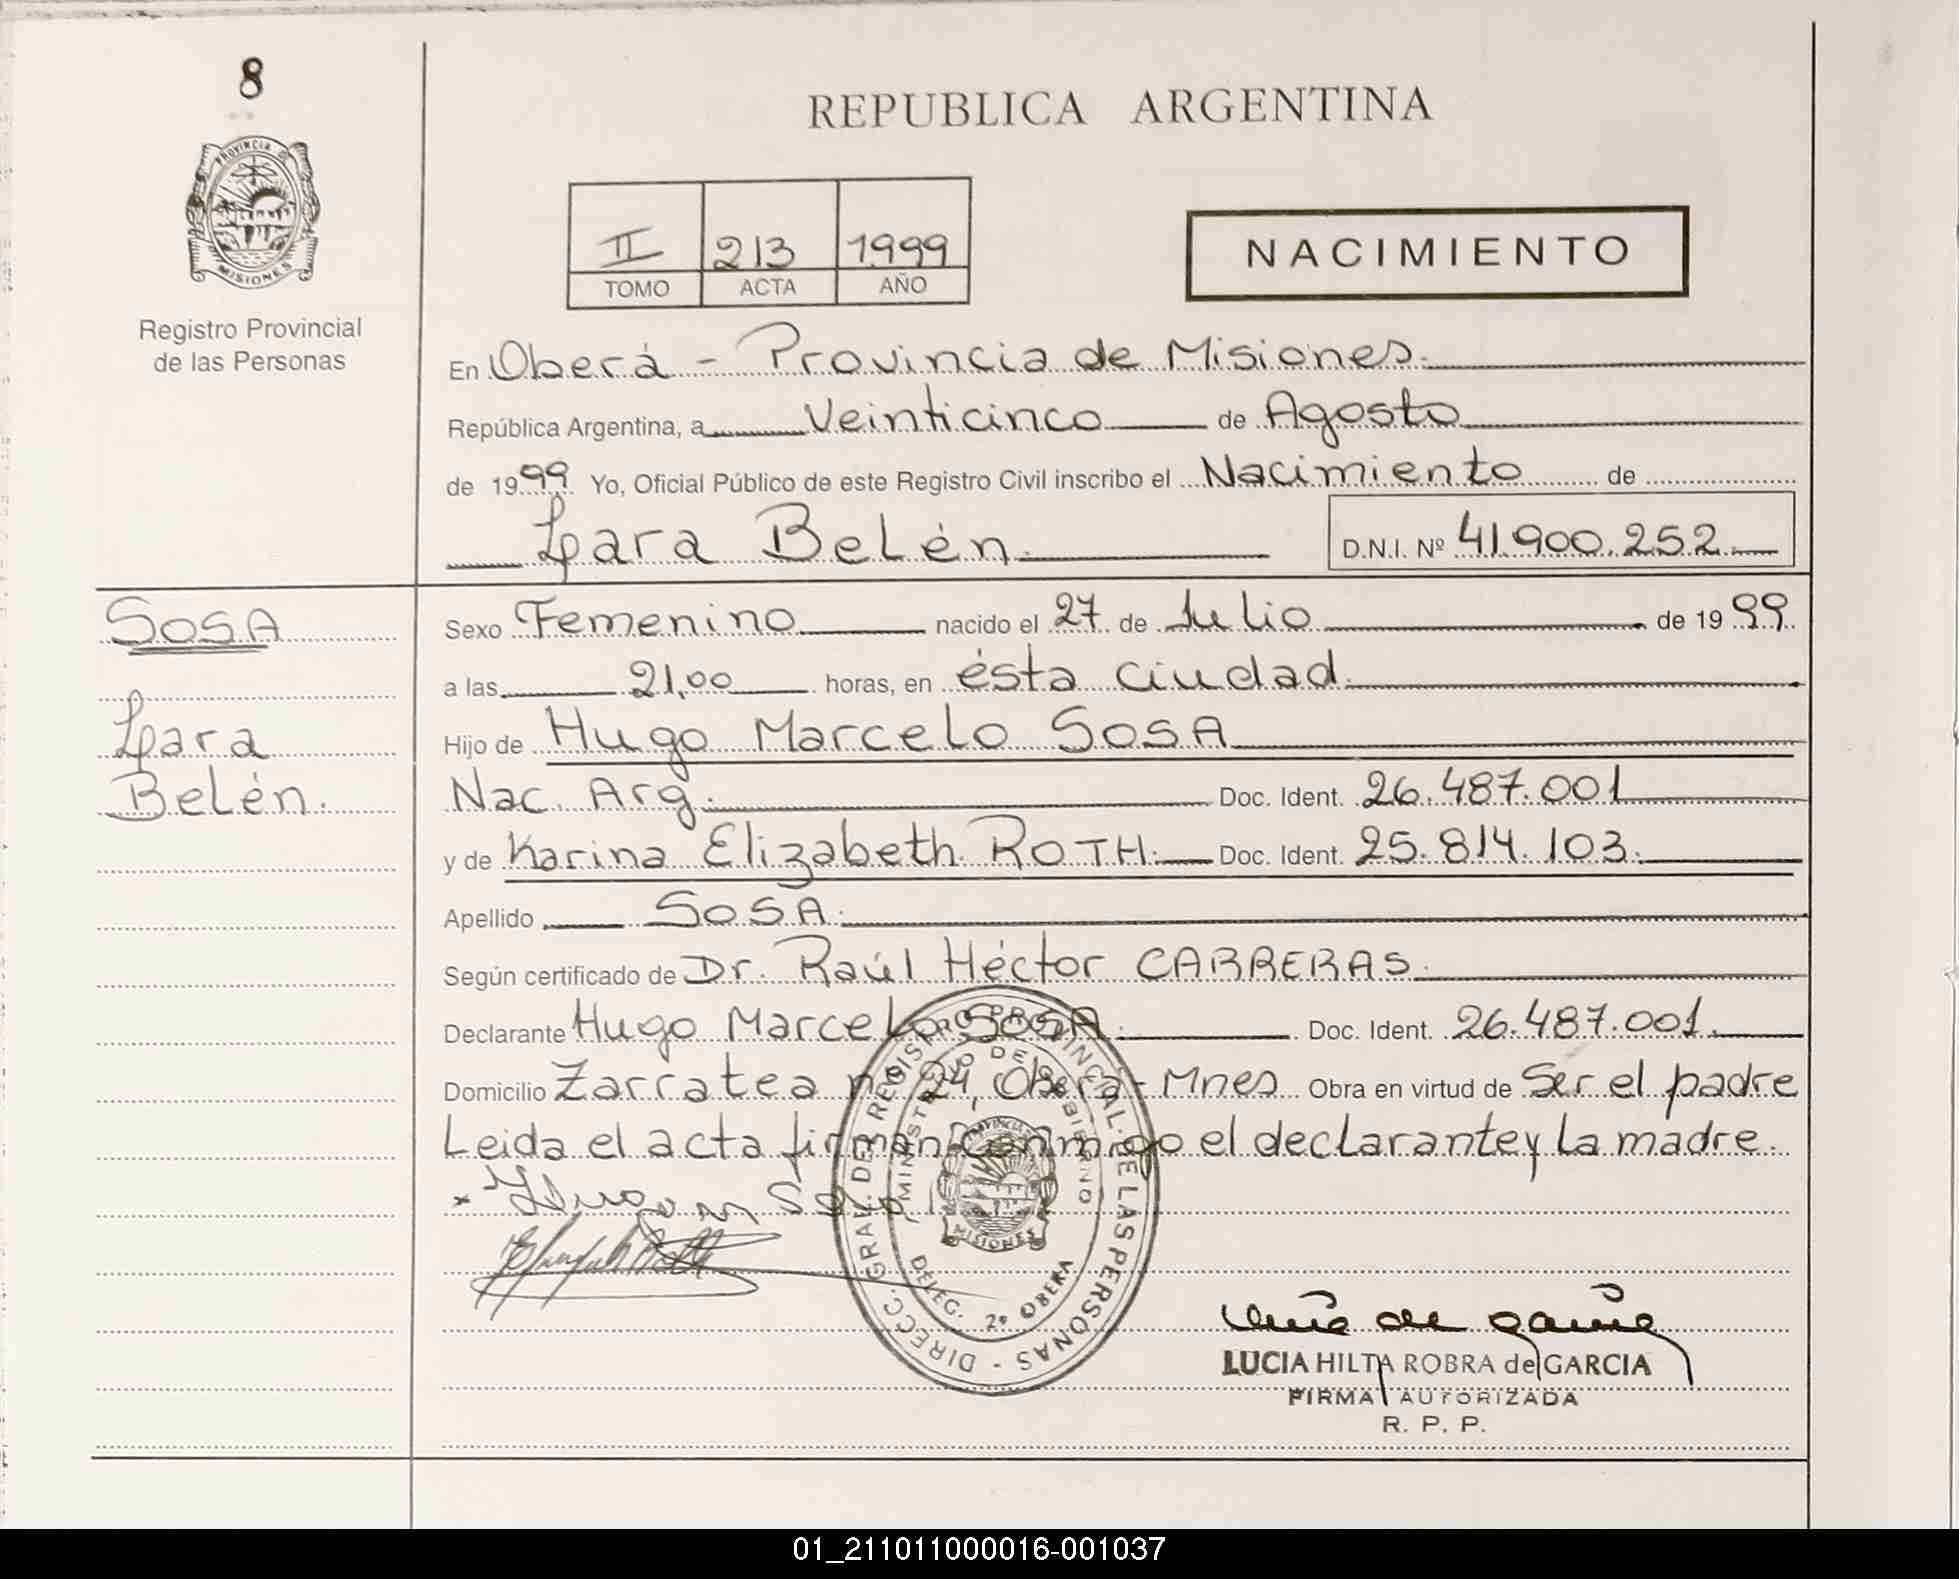 8
PROVINCIA D
MISIONES
Registro Provincial
de las Personas
REPUBLICA ARGENTINA
II 213 1999
TOMO ACTA AÑO
NACIMIENTO
En Oberá - Provincia de Misiones.
República Argentina, a Veinticinco de Agosto
de 1999 Yo, Oficial Público de este Registro Civil inscribo el Nacimiento de
Lara Belén. D.N.I. Nº 41.900.252
SOSA
Lara
Belén.
Sexo Femenino nacido el 27 de Julio de 1999
a las 21,00 horas, en ésta ciudad.
Hijo de Hugo Marcelo SOSA
Nac. Arg. Doc. Ident. 26.487.001
y de Karina Elizabeth ROTH. Doc. Ident. 25.814.103.
Apellido SOSA.
Según certificado de Dr. Raúl Héctor CARRERAS.
Declarante Hugo Marcelo SOSA. Doc. Ident. 26.487.001.
Domicilio Zarratea nº 24, Oberá - Mnes Obra en virtud de Ser el padre
Leida el acta firman conmigo el declarante y la madre.
DIRECC. GRAL. DEL REGISTRO PROVINCIAL DE LAS PERSONAS -
MINISTERIO DE GOBIERNO
PROVINCIA
MISIONES
DELEG. 2º OBERA
LUCIA HILTA ROBRA de GARCIA
FIRMA AUTORIZADA
R. P. P.
01_211011000016-001037